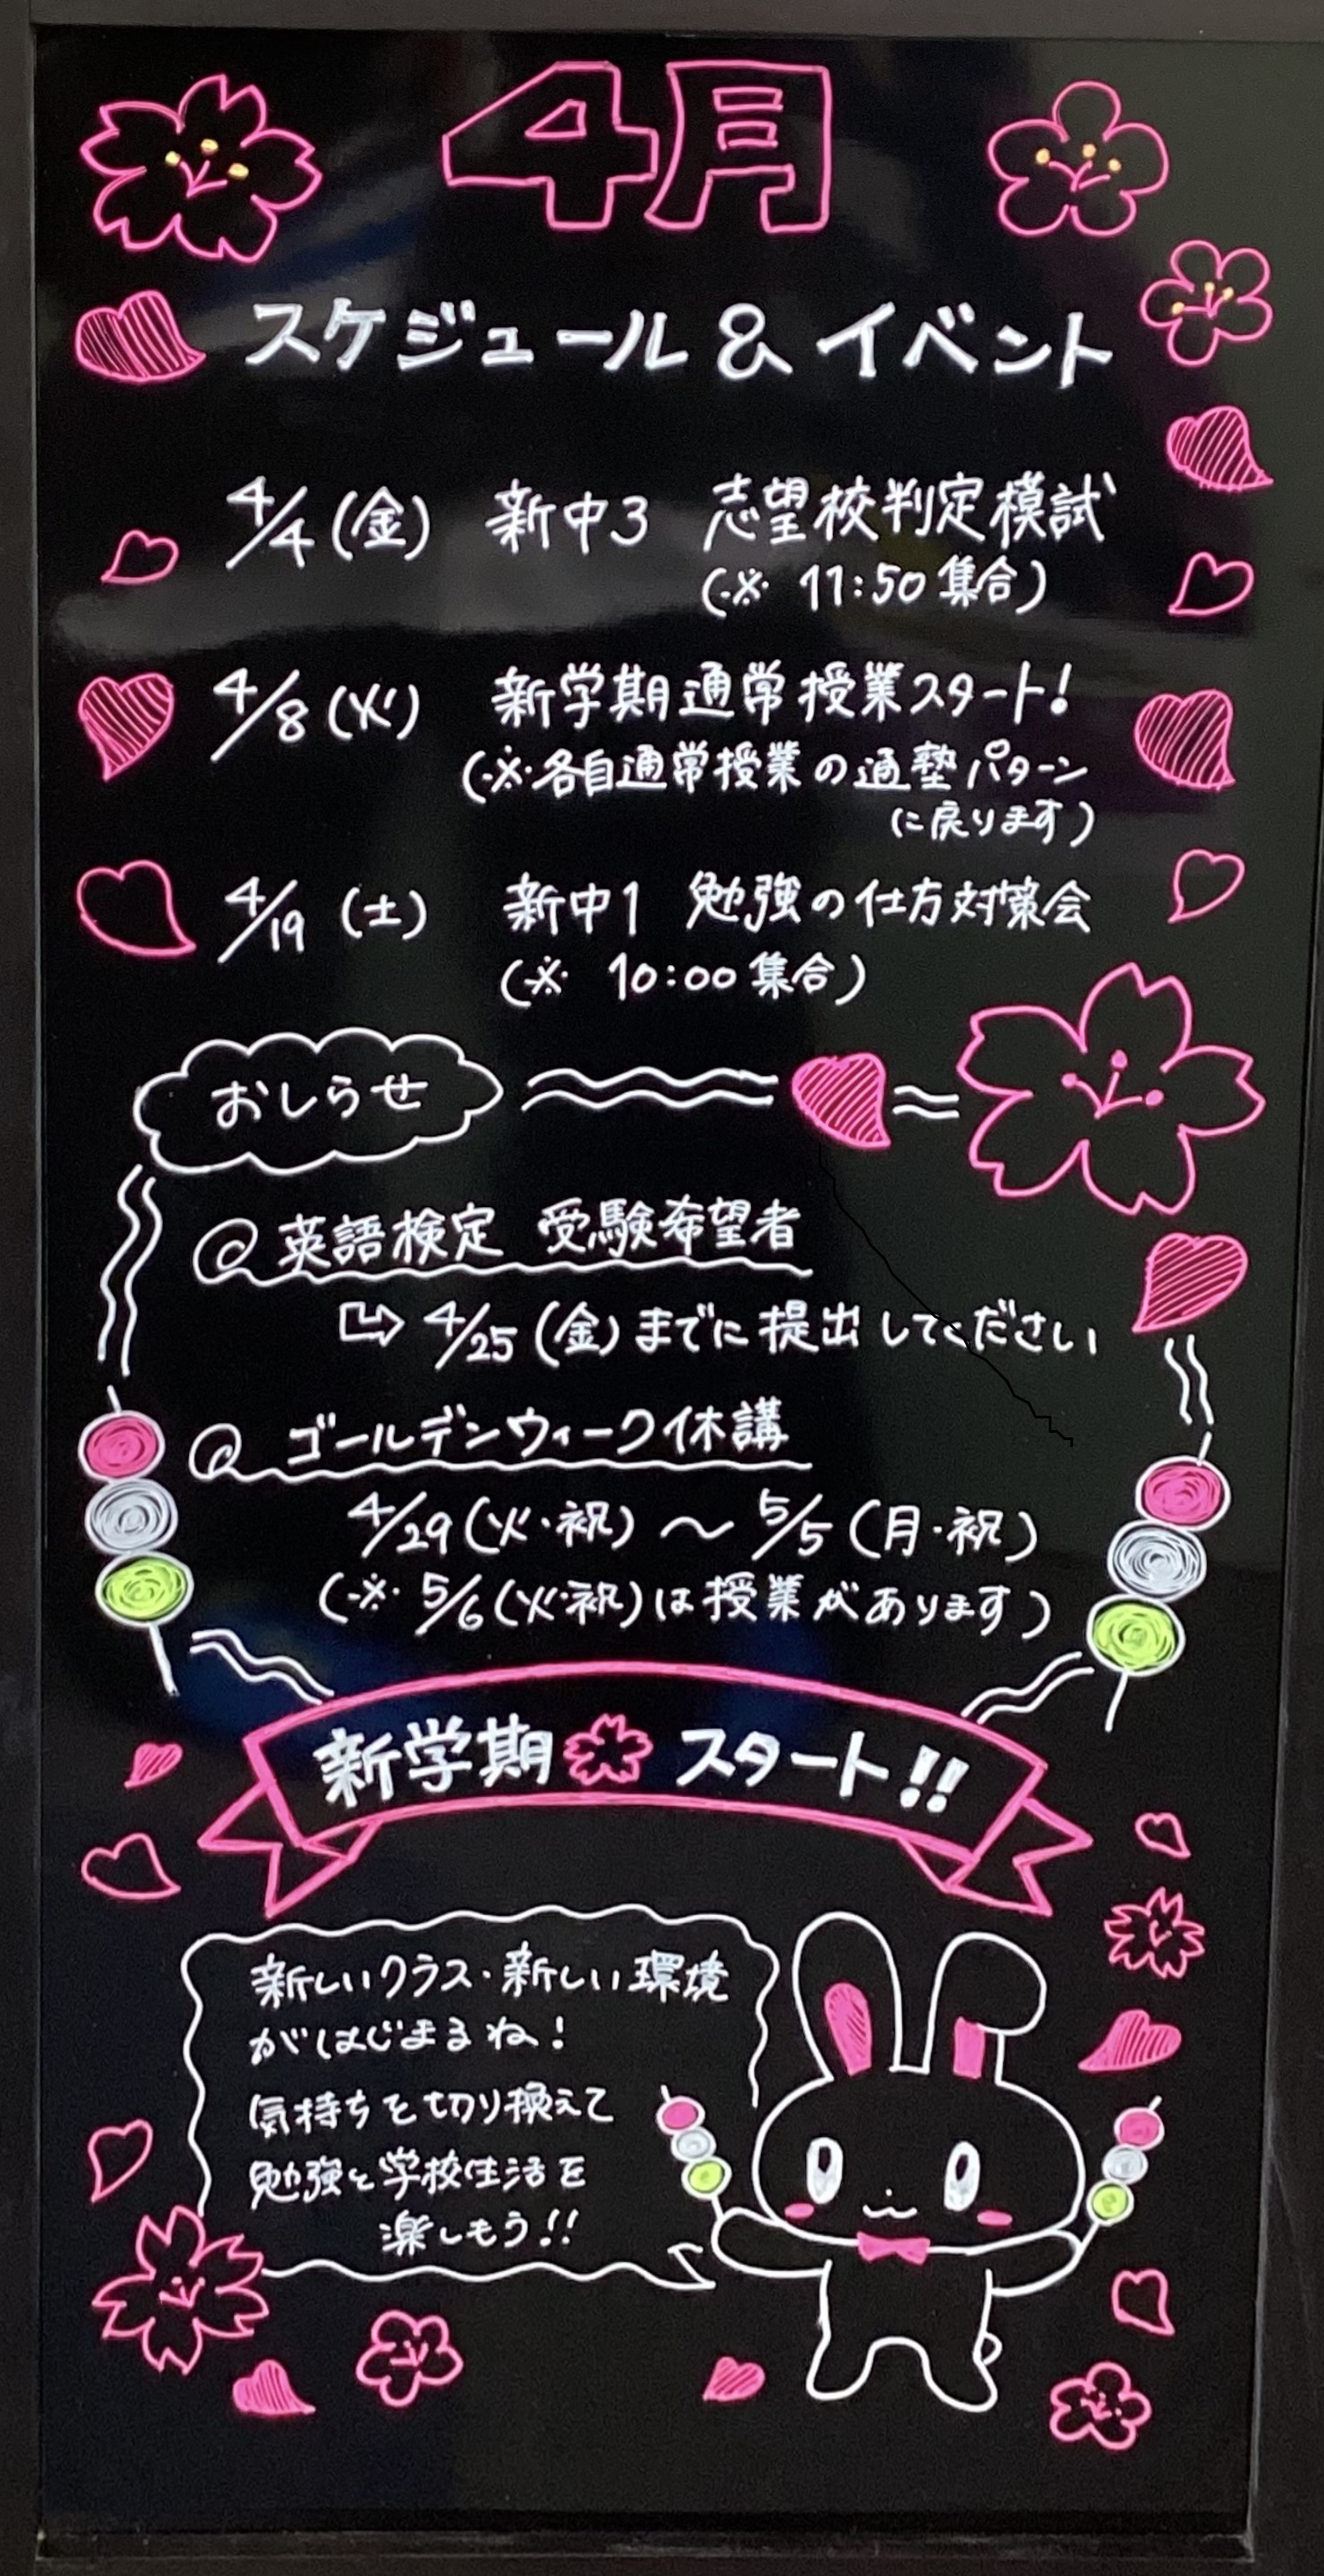 4月
スケジュール & イベント
4/4(金) 新中3 志望校判定模試
(※ 11:50 集合)
4/8(火) 新学期通常授業スタート!
(※各自通常授業の通塾パターン
に戻ります)
4/19(土) 新中1 勉強の仕方対策会
(※ 10:00 集合)
おしらせ
@ 英語検定 受験希望者
⇨ 4/25(金)までに提出してください
@ ゴールデンウィーク休講
4/29(火・祝)〜5/5(月・祝)
(※ 5/6(火・祝)は授業があります)
新学期スタート!!
新しいクラス・新しい環境
がはじまるね!
気持ちを切り換えて
勉強と学校生活を
楽しもう!!